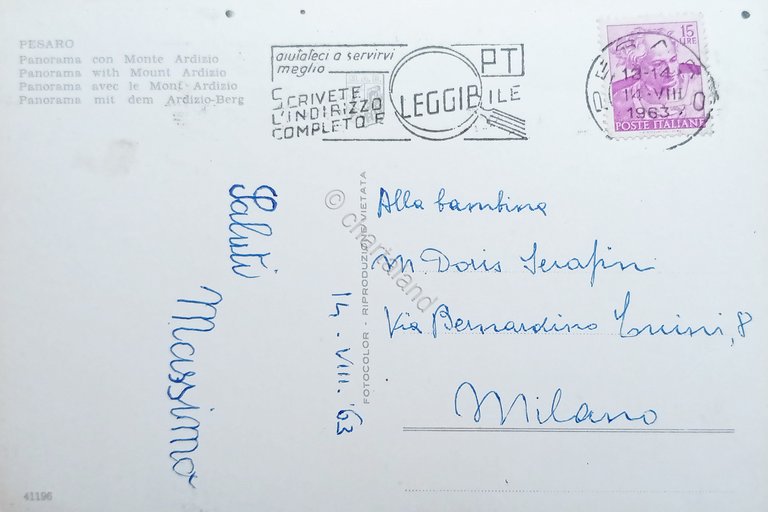 PESARO
Panorama con Monte Ardizio
Panorama with Mount Ardizio
Panorama avec le Mont Ardizio
Panorama mit dem Ardizio-Berg
aiutateci a servirvi
meglio
PT
SCRIVETE
L'INDIRIZZO
COMPLETO E
LEGGIBILE
15
LIRE
13-14
14-VIII
1963
POSTE ITALIANE
Saluti
Massimo
14-VIII.'63
FOTOCOLOR - RIPRODUZIONE VIETATA
© chartaland
Alla bambina
M. Doris Serafini
Via Bernardino 8
Milano
41196